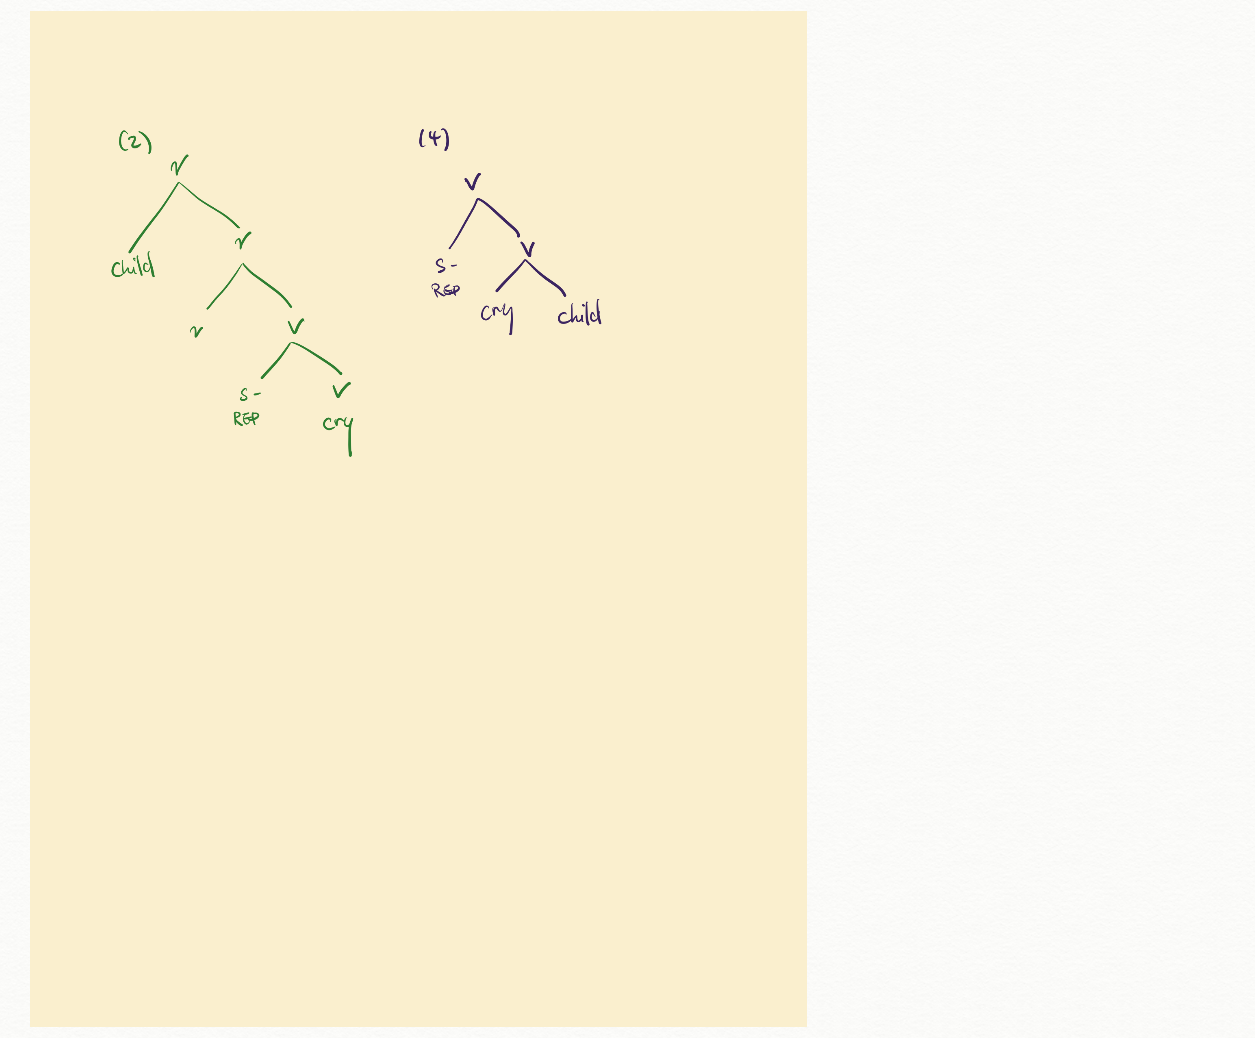 (2)
v
child
v
v
V
S-
REP
V
cry
(4)
V
S-
REP
V
cry
child